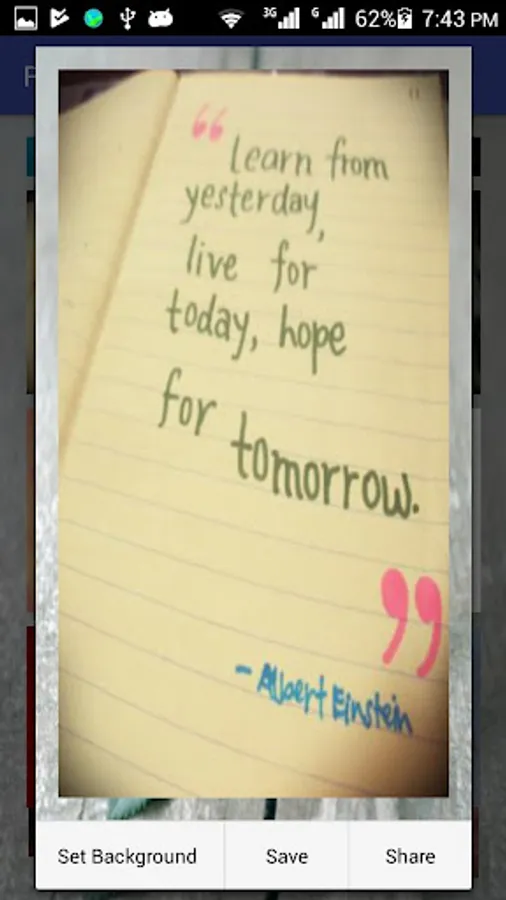 3G G 62% 7:43 PM
“ Learn from
yesterday,
live for
today, hope
for tomorrow.
”
- Albert Einstein
Set Background Save Share